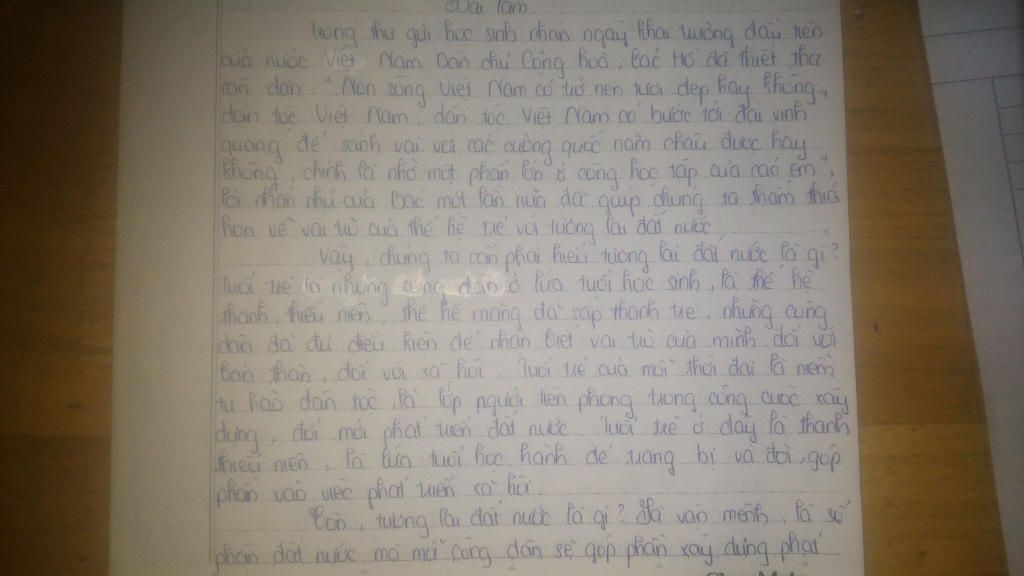 Bài làm
Trong thư gửi học sinh nhân ngày khai trường đầu tiên
của nước Việt Nam Dân chủ Cộng hoà, Bác Hồ đã thiết tha
căn dặn "Non sông Việt Nam có trở nên tươi đẹp hay không,
dân tộc Việt Nam, dân tộc Việt Nam có bước tới đài vinh
quang để sánh vai với các cường quốc năm châu được hay
không, chính là nhờ một phần lớn ở công học tập của các em",
lời nhắn nhủ của Bác một lần nữa đã giúp chúng ta thấm thiá
hơn về vai trò của thế hệ trẻ với tương lai đất nước
Vậy, chúng ta cần phải hiểu tương lai đất nước là gì?
Tuổi trẻ là những công dân ở lứa tuổi học sinh, là thế hệ
thanh, thiếu niên, thế hệ măng đã sắp thành tre, những công
dân đã đủ điều kiện để nhận biết vai trò của mình đối với
bản thân, đối với xã hội. Tuổi trẻ của mỗi thời đại là niềm
tự hào dân tộc, là lớp người tiên phong trong công cuộc xây
dựng, đổi mới phát triển đất nước. Tuổi trẻ ở đây là thanh
thiếu niên, là lứa tuổi học hành để trang bị và đời, góp
phần vào việc phát triển xã hội.
Còn, tương lai đất nước là gì? Là vận mệnh, là số
phận đất nước mà mỗi công dân sẽ góp phần xây dựng phát